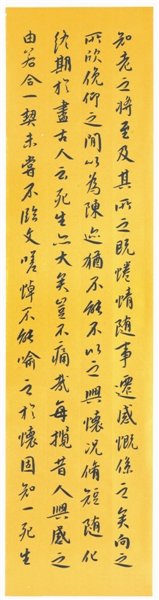 知老之將至及其所之既惓情隨事遷感慨係之矣向之
所欣俛仰之間以為陳迹猶不能不以之興懷況脩短隨化
終期於盡古人云死生亦大矣豈不痛哉每攬昔人興感之
由若合一契未嘗不臨文嗟悼不能喻之於懷固知一死生